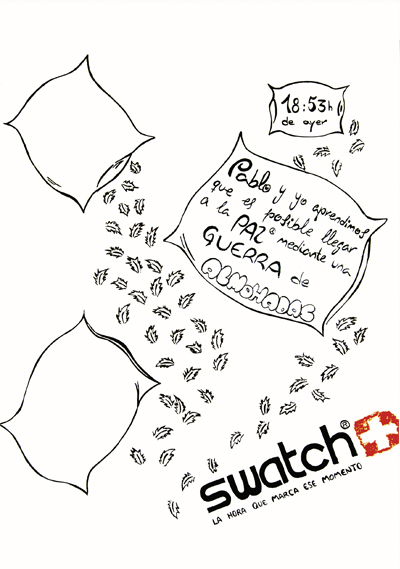 18:53h
de ayer
Pablo y yo aprendimos
que es posible llegar
a la PAZ mediante una
GUERRA de
ALMOHADAS
swatch®
LA HORA QUE MARCA ESE MOMENTO